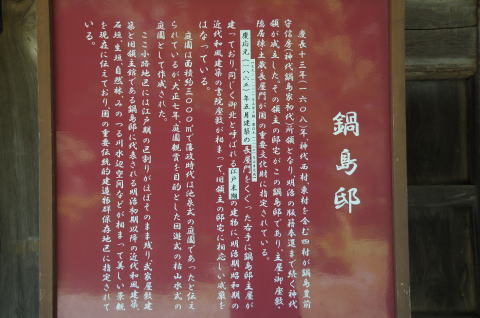 鍋島邸
慶長十三年(一六〇八)年、神代西村東村を含む四村が鍋島豊前
守信房(神代鍋島家初代)所領となり、明治の版籍奉還まで続く神代
領が成立した。その領主の邸宅がこの鍋島邸であり、主屋、御座敷、
隠居棟、土蔵、長屋門が国の重要文化財に指定されている。
慶応元(一八六五)年五月建築の長屋門をくぐった右手に鍋島邸主屋が
建っており、同じく御北と呼ばれる江戸末期の建物に、明治期、昭和期の
近代和風建築の書院座敷が相まって、旧領主の邸宅に相応しい威容を
はなっている。
庭園は面積約三〇〇〇㎡で藩政時代は池泉式の庭園であったと伝え
られているが、大正七年、庭園観賞を目的とした回遊式の枯山水式の
庭園として作成された。
ここ小路地区には江戸期の区割りがほぼそのまま残り、武家屋敷建
築と旧領主館である鍋島邸に代表される明治初期以降の近代和風建築、
石垣、生垣、自然林、みのつる川水辺空間などが相まって美しい景観
を現在に伝えており、国の重要伝統的建造物群保存地区に指定されて
いる。